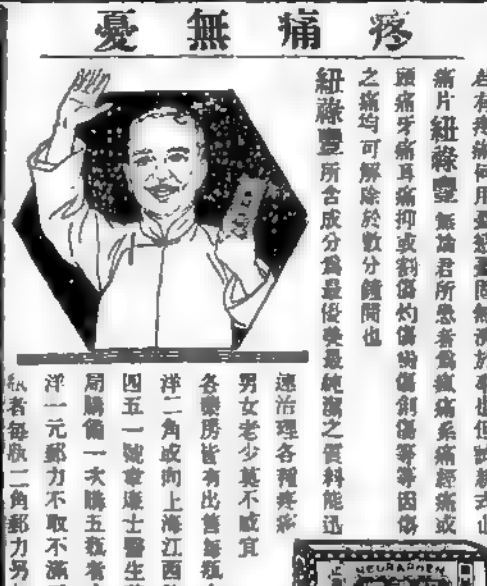 疼痛無憂
痛片紐祿豐無論君所患者為痛系痛經痛或
頭痛牙痛耳痛抑或割傷灼傷傷創傷等等因傷
之痛均可解除於數分鐘間也
紐祿豐所含成分為最優美最純潔之質料能迅
速治理各種疼痛
男女老少莫不咸宜
各藥房皆有出售每瓶
洋二角或向上海江西
四五一號韋廉士醫生
局購備一次購五瓶者
洋一元郵力不取不滿
瓶者每瓶二角郵力另
NEURAPHEN